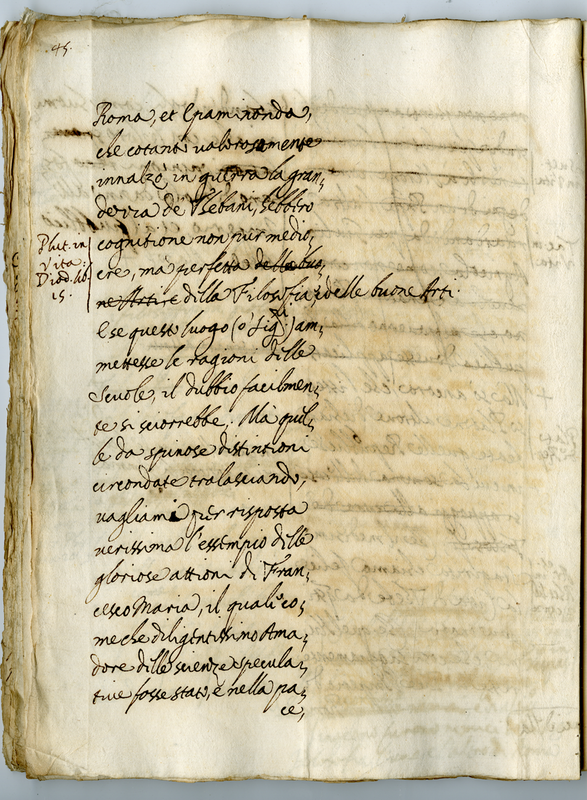 45.
Roma, et Epaminonda,
che cotant' valorosamente
innalzò in guerra la gran,
dezza de' Thebani, hebbero
cognitione non pur medio,
cre, ma perfetta delle buo,
ne Arti e della Filosofia, e delle buone Arti.
Plut. in
Vita.
Diod. lib.
15.
E se quest' luogo (ò Sig.ri) am,
mettesse le ragioni delle
Scuole, il dubbio facilmen,
te si sciorrebbe. Ma quel,
le da spinose distintioni
circondate tralasciando,
vagliami per risposta
verissima l'essempio delle
gloriose attioni di Fran,
cesco Maria, il quale co,
me che diligentissimo Ama,
dore delle scienze specula,
tive fosse stato, e nella pa,
ce,